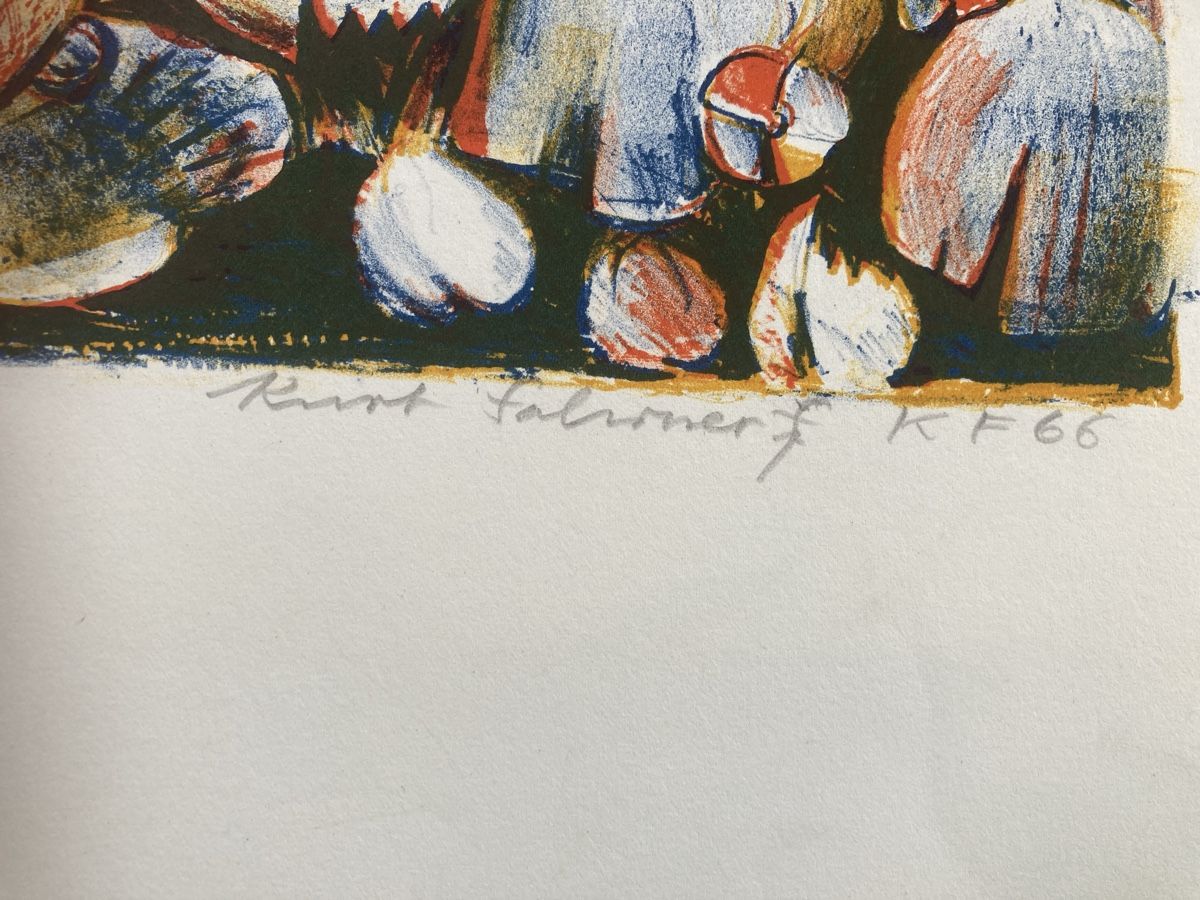 Kurt Fahrner KF 66